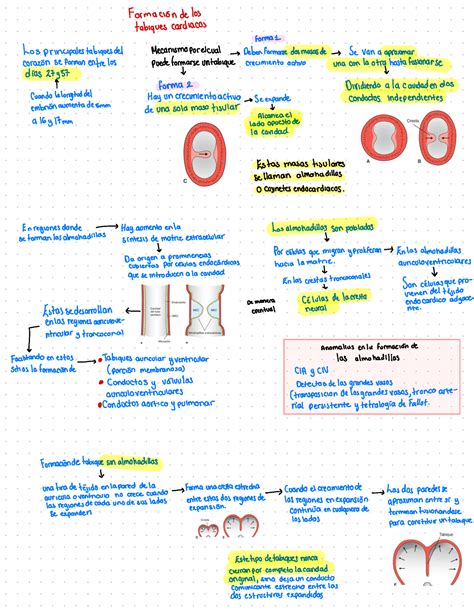 Formación de los
tabiques cardiacos
Los principales tabiques del
corazón se forman entre los
días 27 y 37
Cuando la longitud del
embrión aumenta de 5mm
a 16 y 17 mm
Mecanismo por el cual
Puede formarse un tabique
Forma 1
Deben formarse dos masas de
crecimiento activo
Se van a aproximar
una con la otra hasta fusionarse
Dividiendo a la cavidad en dos
Conductos independientes
Forma 2
Hay un crecimiento activo
de una sola masa tisular
Se expande
Alcanza el
lado opuesto de
la cavidad
C
Cresta
A
B
Estas masas tisulares
se llaman almohadillas
O cojinetes endocardiacos.
En regiones donde
se forman las almohadillas
Hay aumento en la
síntesis de matriz extracelular
Da origen a prominencias
cubiertas por células endocárdicas
que se introducen a la cavidad
Estas se desarrollan
en las regiones auriculove-
ntricular y troncoconal
Focalizando en estos
sitios la formación de
Tabiques auricular y ventricular
(porción membranosa)
Conductos y válvulas
auriculoventriculares
Conductos aórtico y pulmonar
Las almohadillas son pobladas
Por células que migran y proliferan
hacia la matriz.
En las almohadillas
auriculoventriculares
Son células que pro-
vienen del tejido
endocardico adyace-
nte.
En las crestas troncoconales
De manera
eventual
Células de la cresta
neural
Anomalias en la formación de
las almohadillas
CIA y CIV
Defectos de los grandes vasos
(transposicion de los grandes vasos, tronco arte-
rial persistente y tetralogía de Fallot.
Formación de tabique sin almohadillas
una tira de tejido en la pared de la
aurícula o ventrículo no crece cuando
las regiones de cada uno de sus lados
se expanden
Forma una cresta estrecha
entre estas dos regiones de
expansión.
Cuando el crecimiento de
las regiones en expansión
continúa en cualquiera de
los lados
Las dos paredes se
aproximan entre sí y
terminan fusionandose
para constituir un tabique
Tabique
Este tipo de tabiques nunca
cierran por completo la cavidad
original, sino deja un conducto
comunicante estrecho entre las
dos estructuras expandidas